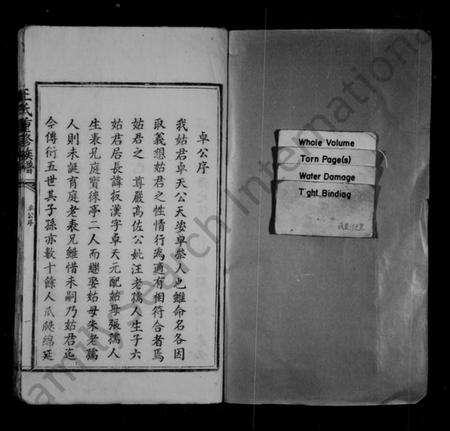 卓公序
我姑君卓天公天姿卓犖也雖命名各因
取義想姑君之性情行為適有相符合者焉
姑君之 尊嚴高佐公妣汪老孺人生子六
姑君居長諱板漢字卓天元配姑母張孺人
生表兄庭賓徠亭二人而繼娶姑母朱老孺
人則未誕育庭老表兄雖惜未嗣乃姑君迄
今傳衍五世其子孫亦數十餘人瓜瓞綿延
王氏重修族譜
卓公序
一
Whole Volume
Torn Page(s)
Water Damage
Tight Binding
FamilySearch International